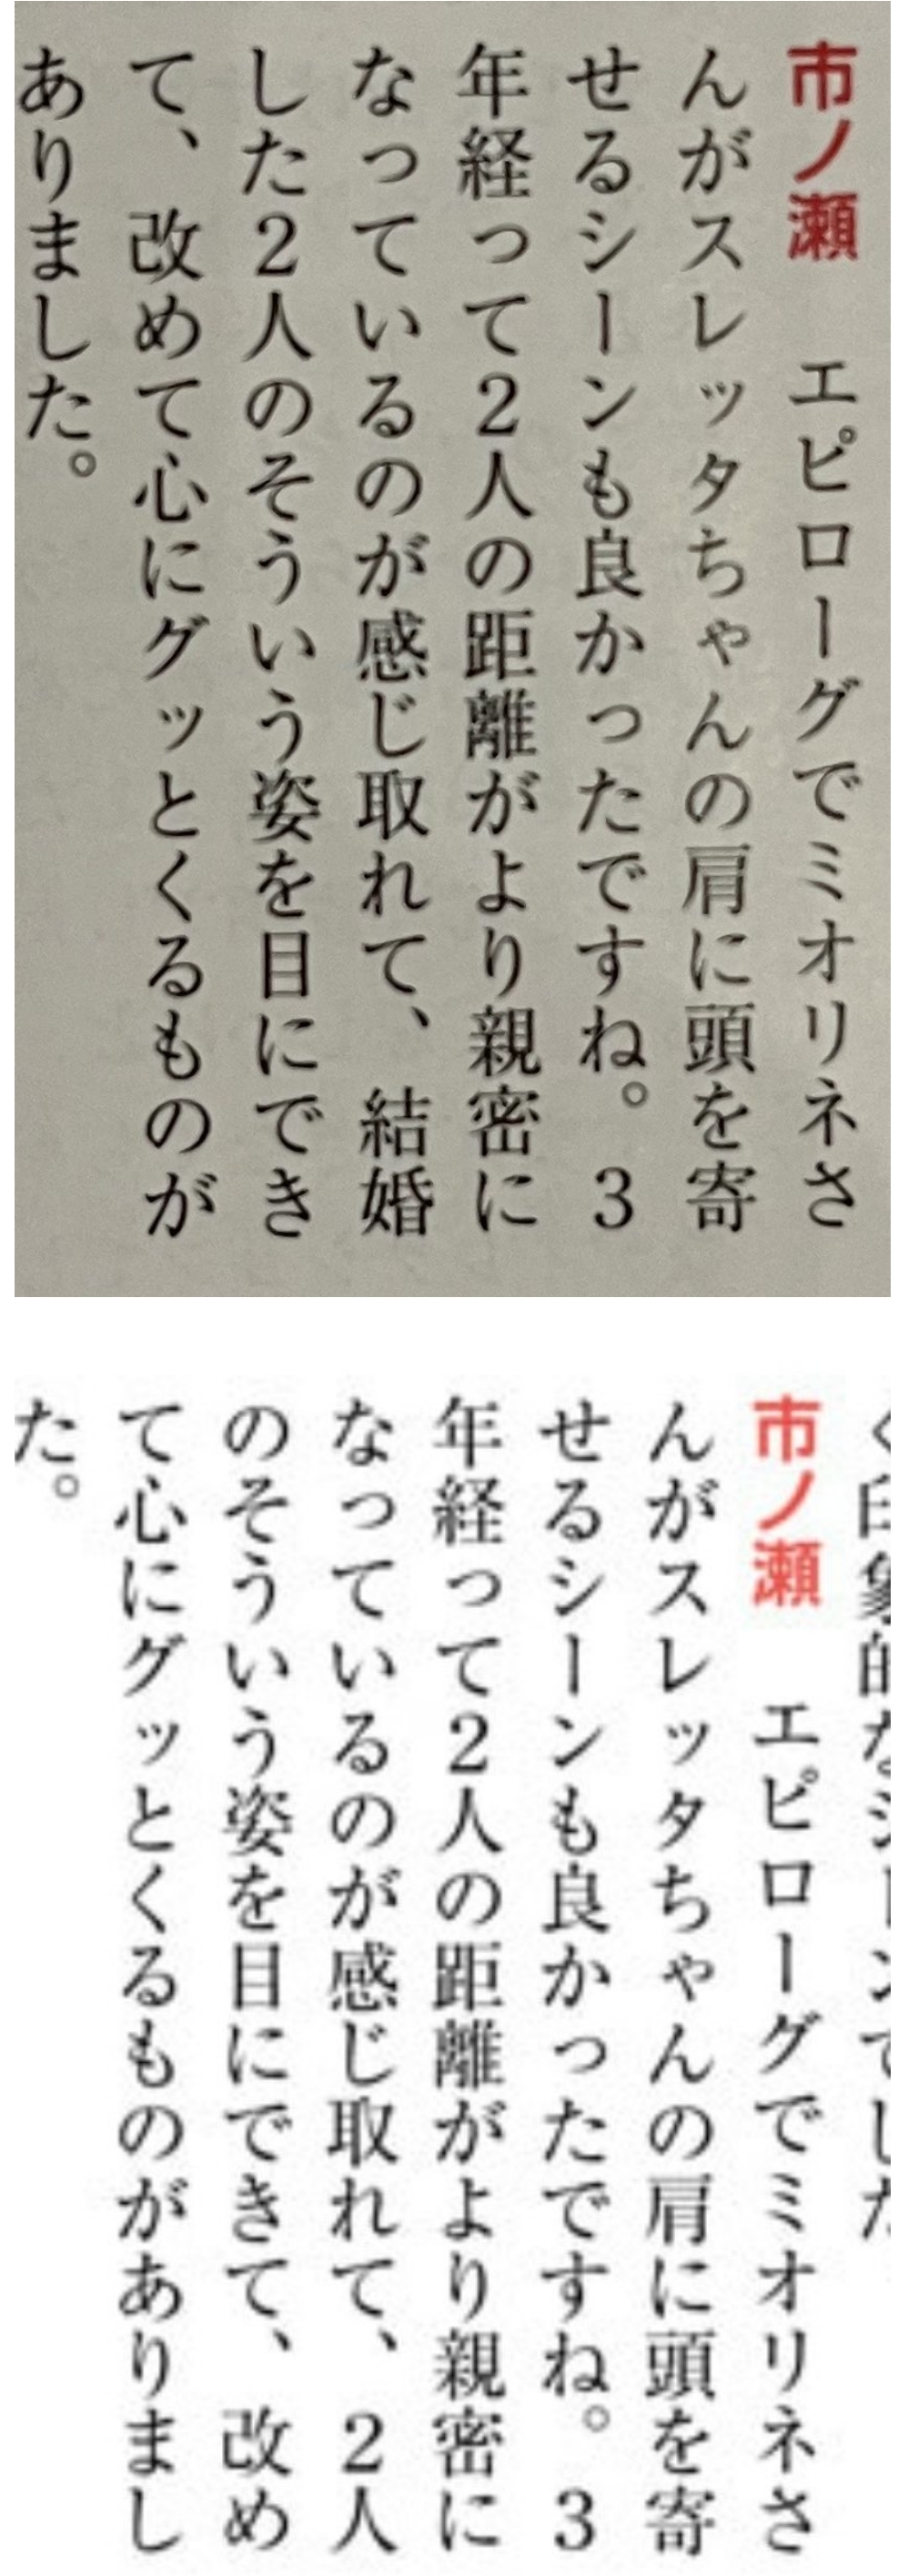 市ノ瀬　エピローグでミオリネさ
んがスレッタちゃんの肩に頭を寄
せるシーンも良かったですね。3
年経って2人の距離がより親密に
なっているのが感じ取れて、結婚
した2人のそういう姿を目にでき
て、改めて心にグッとくるものが
ありました。
く印象的なシーンでした
市ノ瀬　エピローグでミオリネさ
んがスレッタちゃんの肩に頭を寄
せるシーンも良かったですね。3
年経って2人の距離がより親密に
なっているのが感じ取れて、2人
のそういう姿を目にできて、改め
て心にグッとくるものがありまし
た。